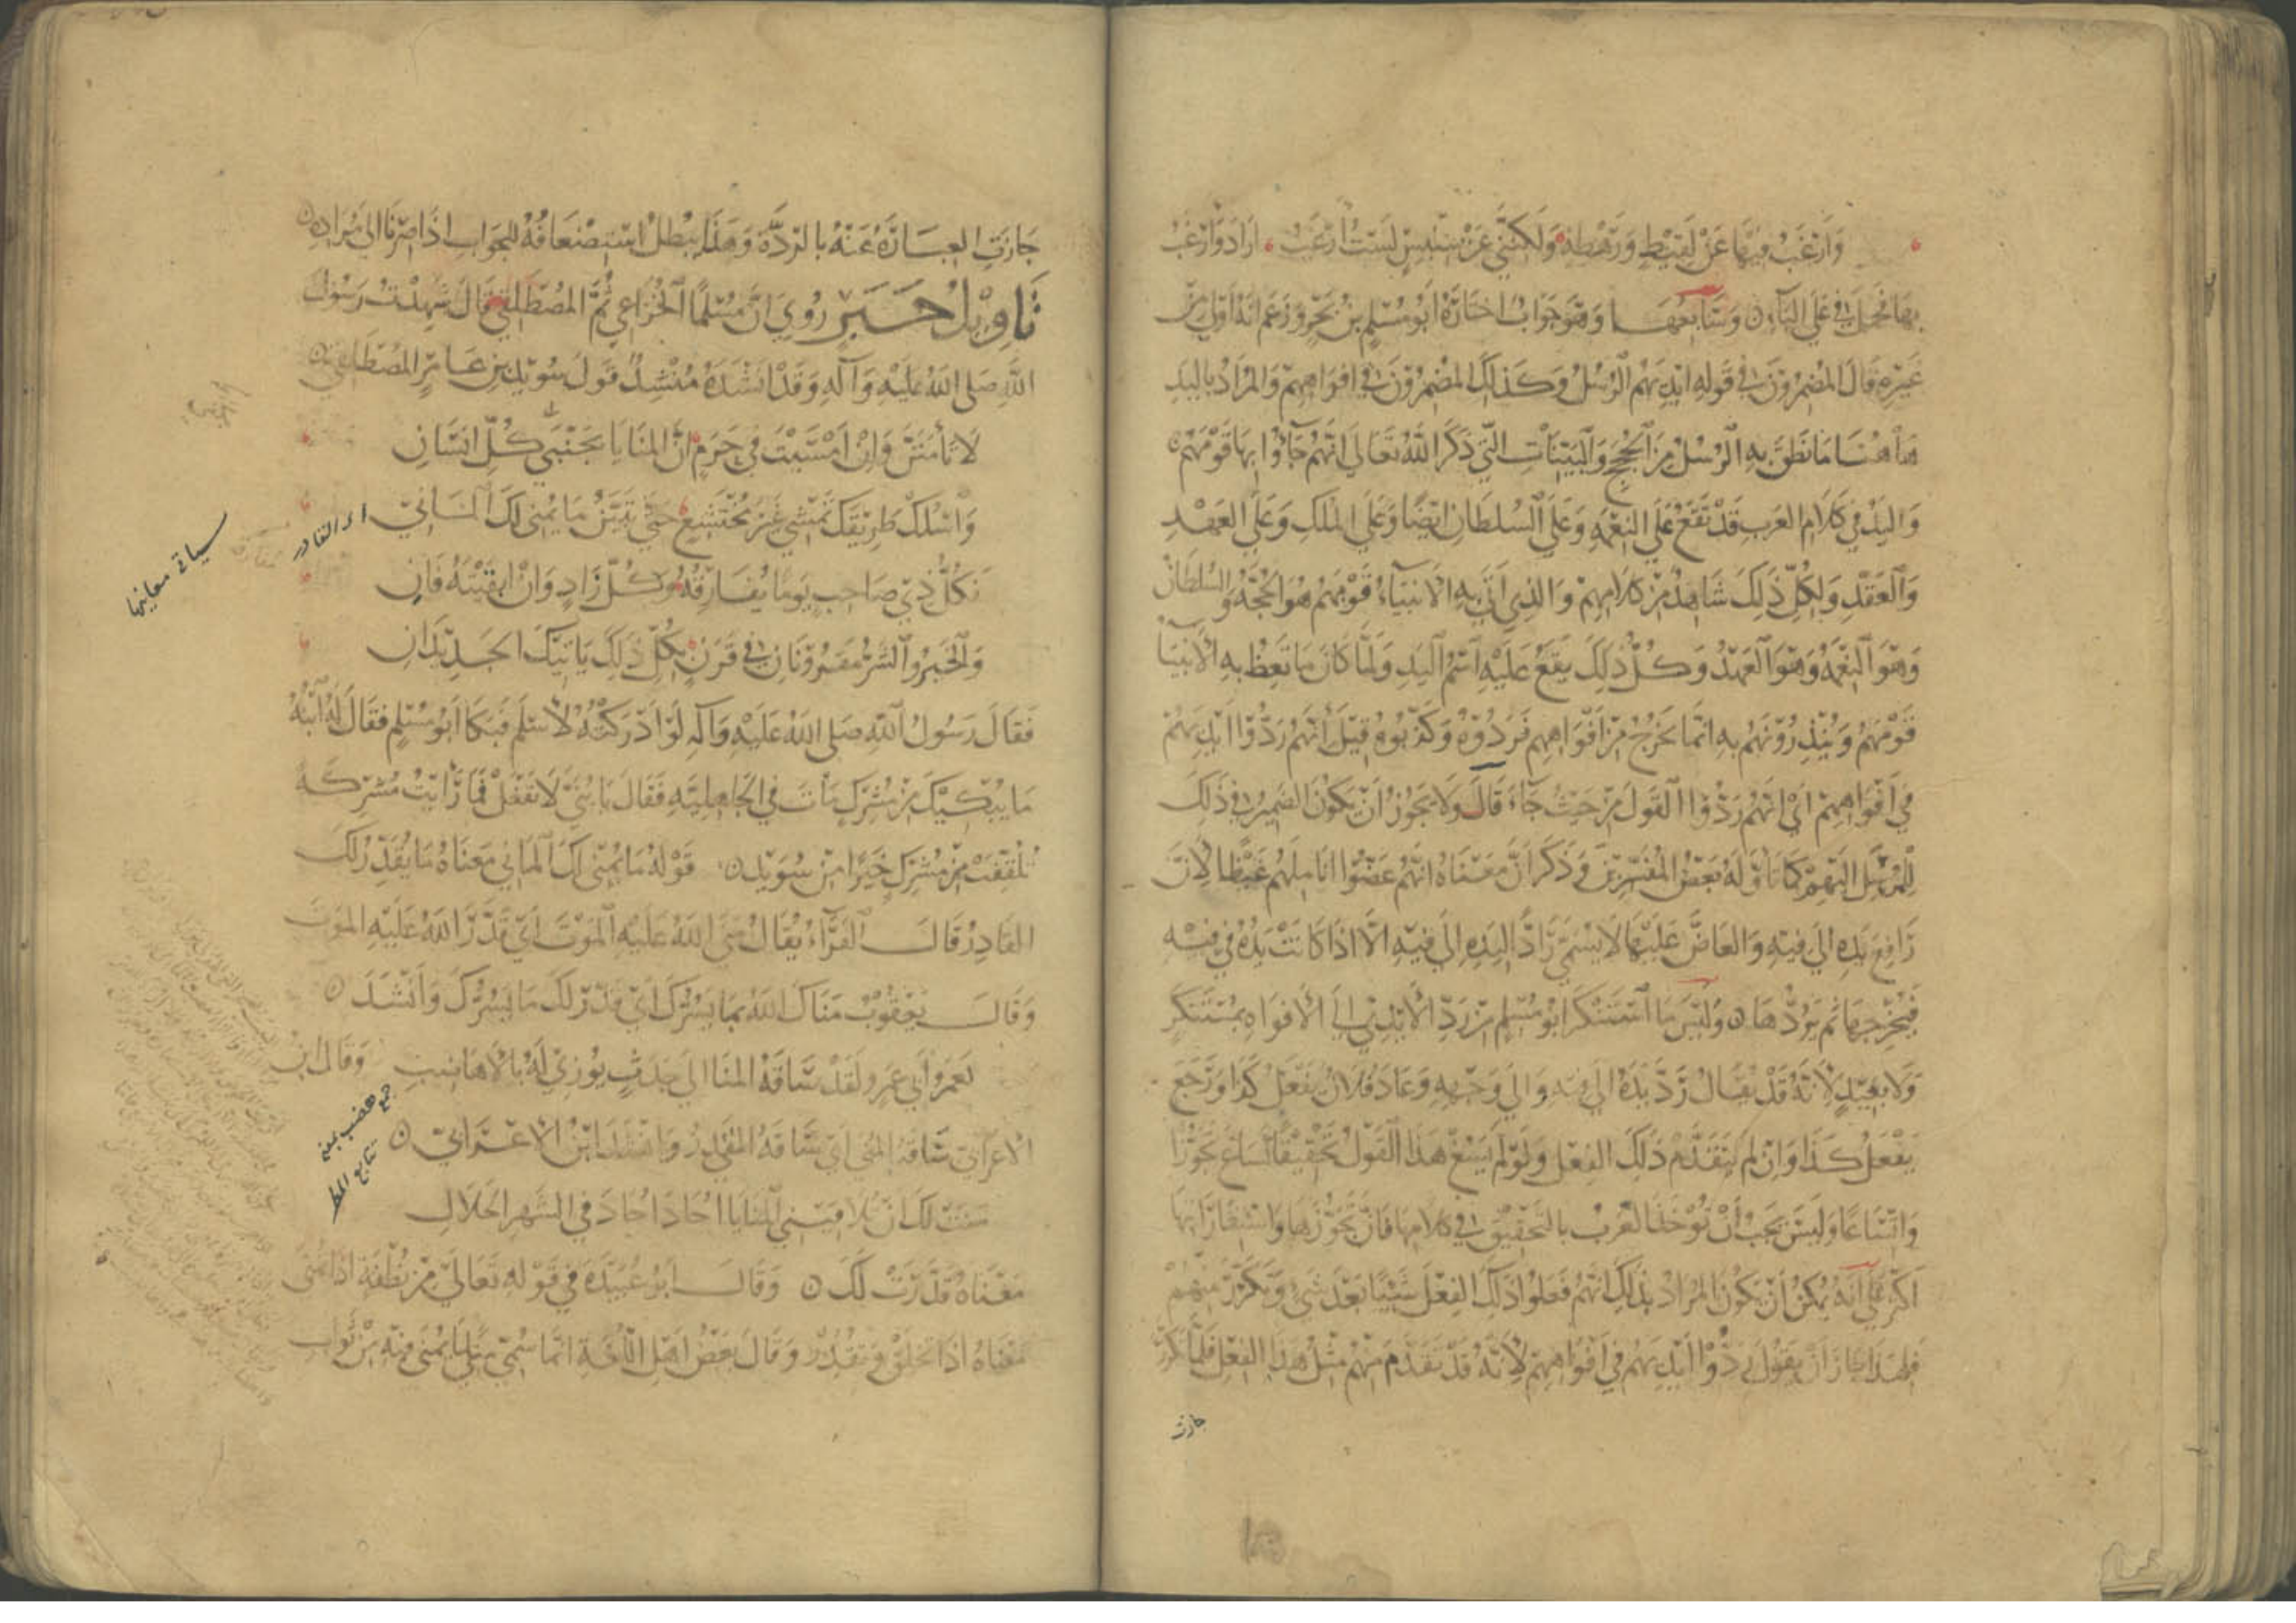 وَأَرْغَبُ فِيهَا عَنْ لَقِيطٍ وَرَهْطِهِ وَلَكِنَّنِي عَنْ سِنْبِسٍ لَسْتُ أَرْغَبُ أراد وأرغب
بها فحمل في على الباء وسابعها وهو جواب اختاره أبو مسلم بن بحر وزعم أنه أولى من
غيره قال المضمرون في قوله أيديهم الرسل وكذلك المضمرون في أفواههم والمراد باليد
هاهنا ما نطق به الرسل من الحجج والبينات التي ذكر الله تعالى أنهم جاؤا بها قومهم
واليد في كلام العرب قد تقع على النعمة وعلى السلطان أيضا وعلى الملك وعلى العهد
والعقد ولكل ذلك شاهد من كلامهم والذي أتى به الأنبياء قومهم هو الحجة والسلطان
وهو النعمة وهو العهد وكل ذلك يقع عليه اسم اليد ولما كان ما تعظ به الأنبياء
قومهم وينذرونهم به إنما يخرج من أفواههم فردوه وكذبوه قيل أنهم ردوا أيديهم
في أفواههم أي أنهم ردوا القول من حيث جاء قال ولا يجوز أن يكون الضمير في ذلك
للمرسل إليهم كما تأوله بعض المفسرين وذكر أن معناه أنهم عضوا أناملهم غيظا لأن
رافع يده إلى فيه والعاض عليها لا يسمى رادا ليده إلى فيه إلا إذا كانت يده في فيه
فيخرجها ثم يردها وليس ما استنكر أبو مسلم من رد الأيدي إلى الأفواه بمستنكر
ولا بعيد لأنه قد يقال رد يده إلى فيه وإلى وجهه وعاد فلان يفعل كذا ورجع
يفعل كذا وإن لم يتقدم ذلك الفعل ولو لم يسغ هذا القول تحقيقا لساغ تجوزا
واتساعا وليس يجب أن تؤخذ العرب بالتحقيق في كلامها فإن تجوزها واستعاراتها
أكثر على أنه يمكن أن يكون المراد بذلك أنهم فعلوا ذلك الفعل شيئا بعد شيء وتكرر منهم
فلهذا جاز أن يقول ردوا أيديهم في أفواههم لأنه قد تقدم منهم مثل هذا الفعل فلما تكرر
جازت
جازت العبارة عنه بالرد وهذا يبطل استضعافه للجواب إذا صرنا إلى مراده
تأويل خبر روي أن مسلما الخزاعي ثم المصطلقي قال شهدت رسول
الله صلى الله عليه وآله وقد أنشده منشد قول سويد بن عامر المصطلقي
لا تأمنن وإن أمسيت في حرم إن المنايا بجنبي كل إنسان
واسلك طريقك تمشي غير مختشع حتى تبين ما يمني لك الماني
فكل ذي صاحب يوما يفارقه وكل زاد وإن أبقيته فان
والخير والشر مقرونان في قرن بكل ذلك يأتيك الجديدان
فقال رسول الله صلى الله عليه وآله لو أدركته لأسلم فبكا أبو مسلم فقال له ابنه
ما يبكيك من مشرك مات في الجاهلية فقال يا بني لا تفعل فما رأيت مشركة
تلقفت من مشرك خيرا من سويد قوله ما يمني لك الماني معناه ما يقدر لك
القادر قال الفراء يقال منى الله عليه الموت أي قدر الله عليه الموت
وقال يعقوب مناك الله بما يسرك أي قدر لك ما يسرك وأنشد
لعمر أبي عمرو لقد ساقه المنا إلى جدث يوزى له بالأهاضب وقال ابن
الأعرابي ساقه المنى أي ساقه المقدر وأنشد ابن الأعرابي
منت لك أن تلاقيني المنايا أحاد أحاد في الشهر الحلال
معناه قدرت لك وقال أبو عبيدة في قوله تعالى من نطفة إذا تمنى
معناه إذا تخلق وتقدر وقال بعض أهل اللغة إنما سمي منى لما يمنى فيه من ثواب
أي القادر
سياتي معانيها
جمع هضب بمعنى
تتابع المطر